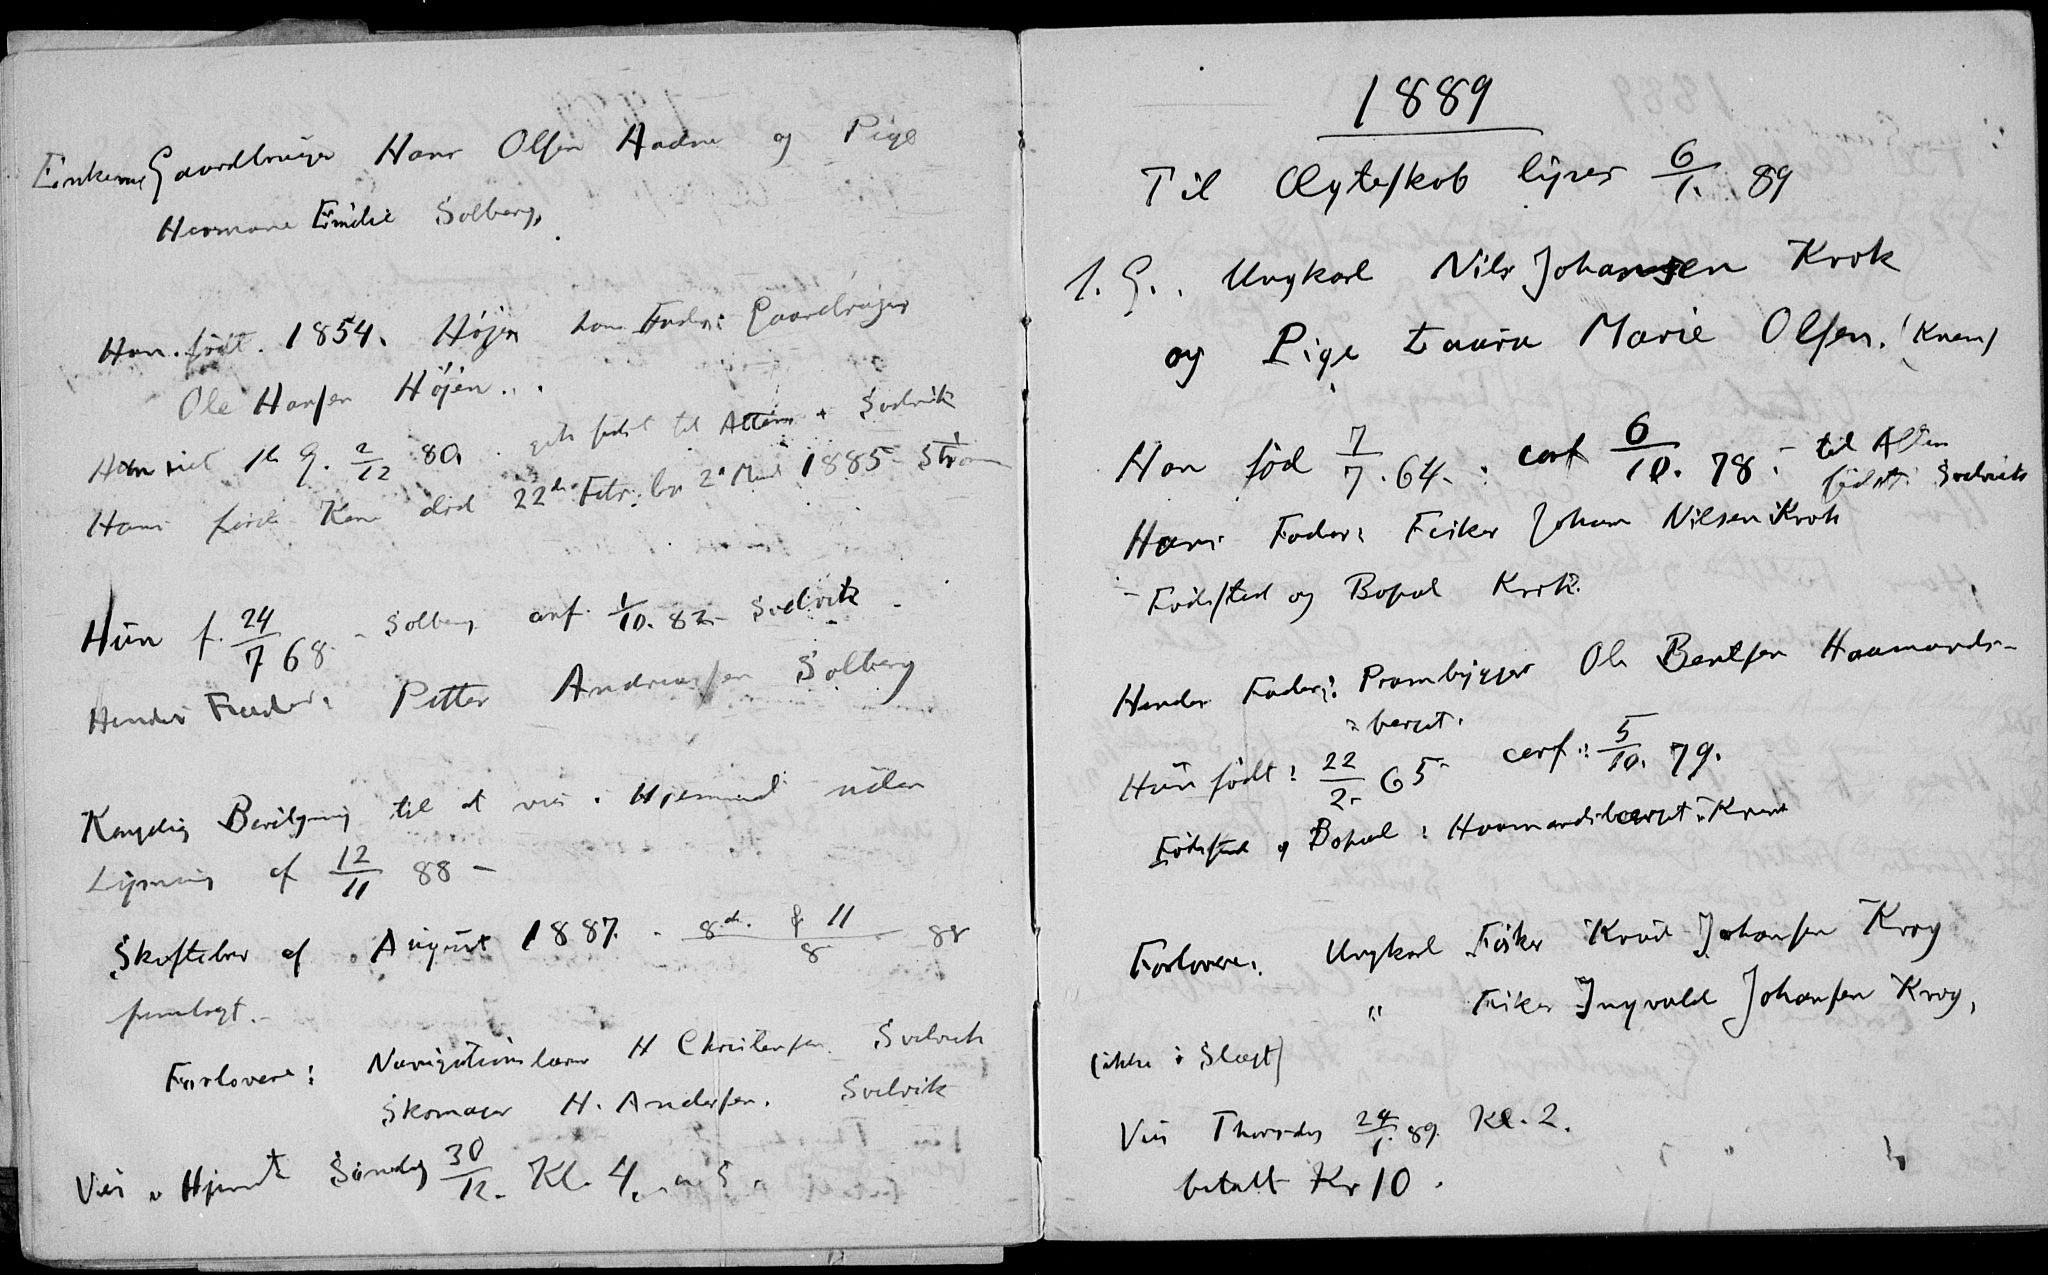 Enkem. Gaardbruger Hans Olsen Aadne og Pige
Hermane Emilie Solberg.
Han født 1854. Højen hans Fader: Gaardbruger
Ole Hansen Højen.
Han viet 1ste G. 2/12 80. født til Alters i Svelvik
Hans første Kone død 22de Febr. 1885 Strøm
Hun f. 24/7 68 - Solberg conf. 1/10. 82 - Svelvik
Hendes Fader: Petter Andreassen Solberg
Kongelig Bevilgning til at vies i Hjemmet uden
Lysning af 12/11 88 -
Skiftebrev af August 1887. 11/8 88
fremlagt.
Forlovere: Navigationslærer H Christensen Svelvik
Skomager H. Andersen. Svelvik
Vies i Hjemmet Søndag 30/12. Kl. 4
1889
Til Ægteskab lyses 6/1. 89
1. G. Ungkarl Nils Johansen Krok
og Pige Laura Marie Olsen.
Han fød 7/7. 64. conf 6/10. 78. til Alter
født Svelvik
Hans Fader: Fisker Johan Nilsen Krok
Fødested og Bopæl Krok.
Hendes Fader: Prambygger Ole Bentsen Haamands-
berget.
Hun født: 22/2. 65 conf: 5/10. 79.
Fødested og Bopæl: Haamandsberget
Forlovere: Ungkarl Fisker Knud Johansen Krog
" Fisker Ingvald Johansen Krog,
(ikke i Slægt)
Vies Thorsdag 24/1. 89. Kl. 2.
betalt Kr 10.